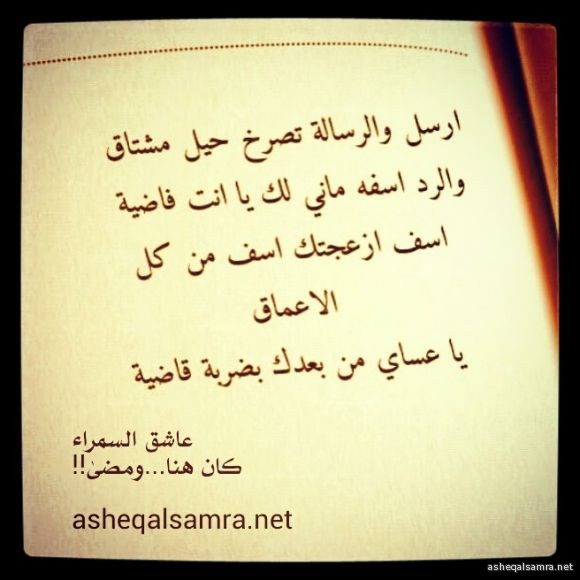 ارسل والرسالة تصرخ حيل مشتاق
والرد اسفه ماني لك يا انت فاضية
اسف ازعجتك اسف من كل
الاعماق
يا عساي من بعدك بضربة قاضية
عاشق السمراء
كان هنا...ومضىٰ!!
asheqalsamra.net
asheqalsamra.net